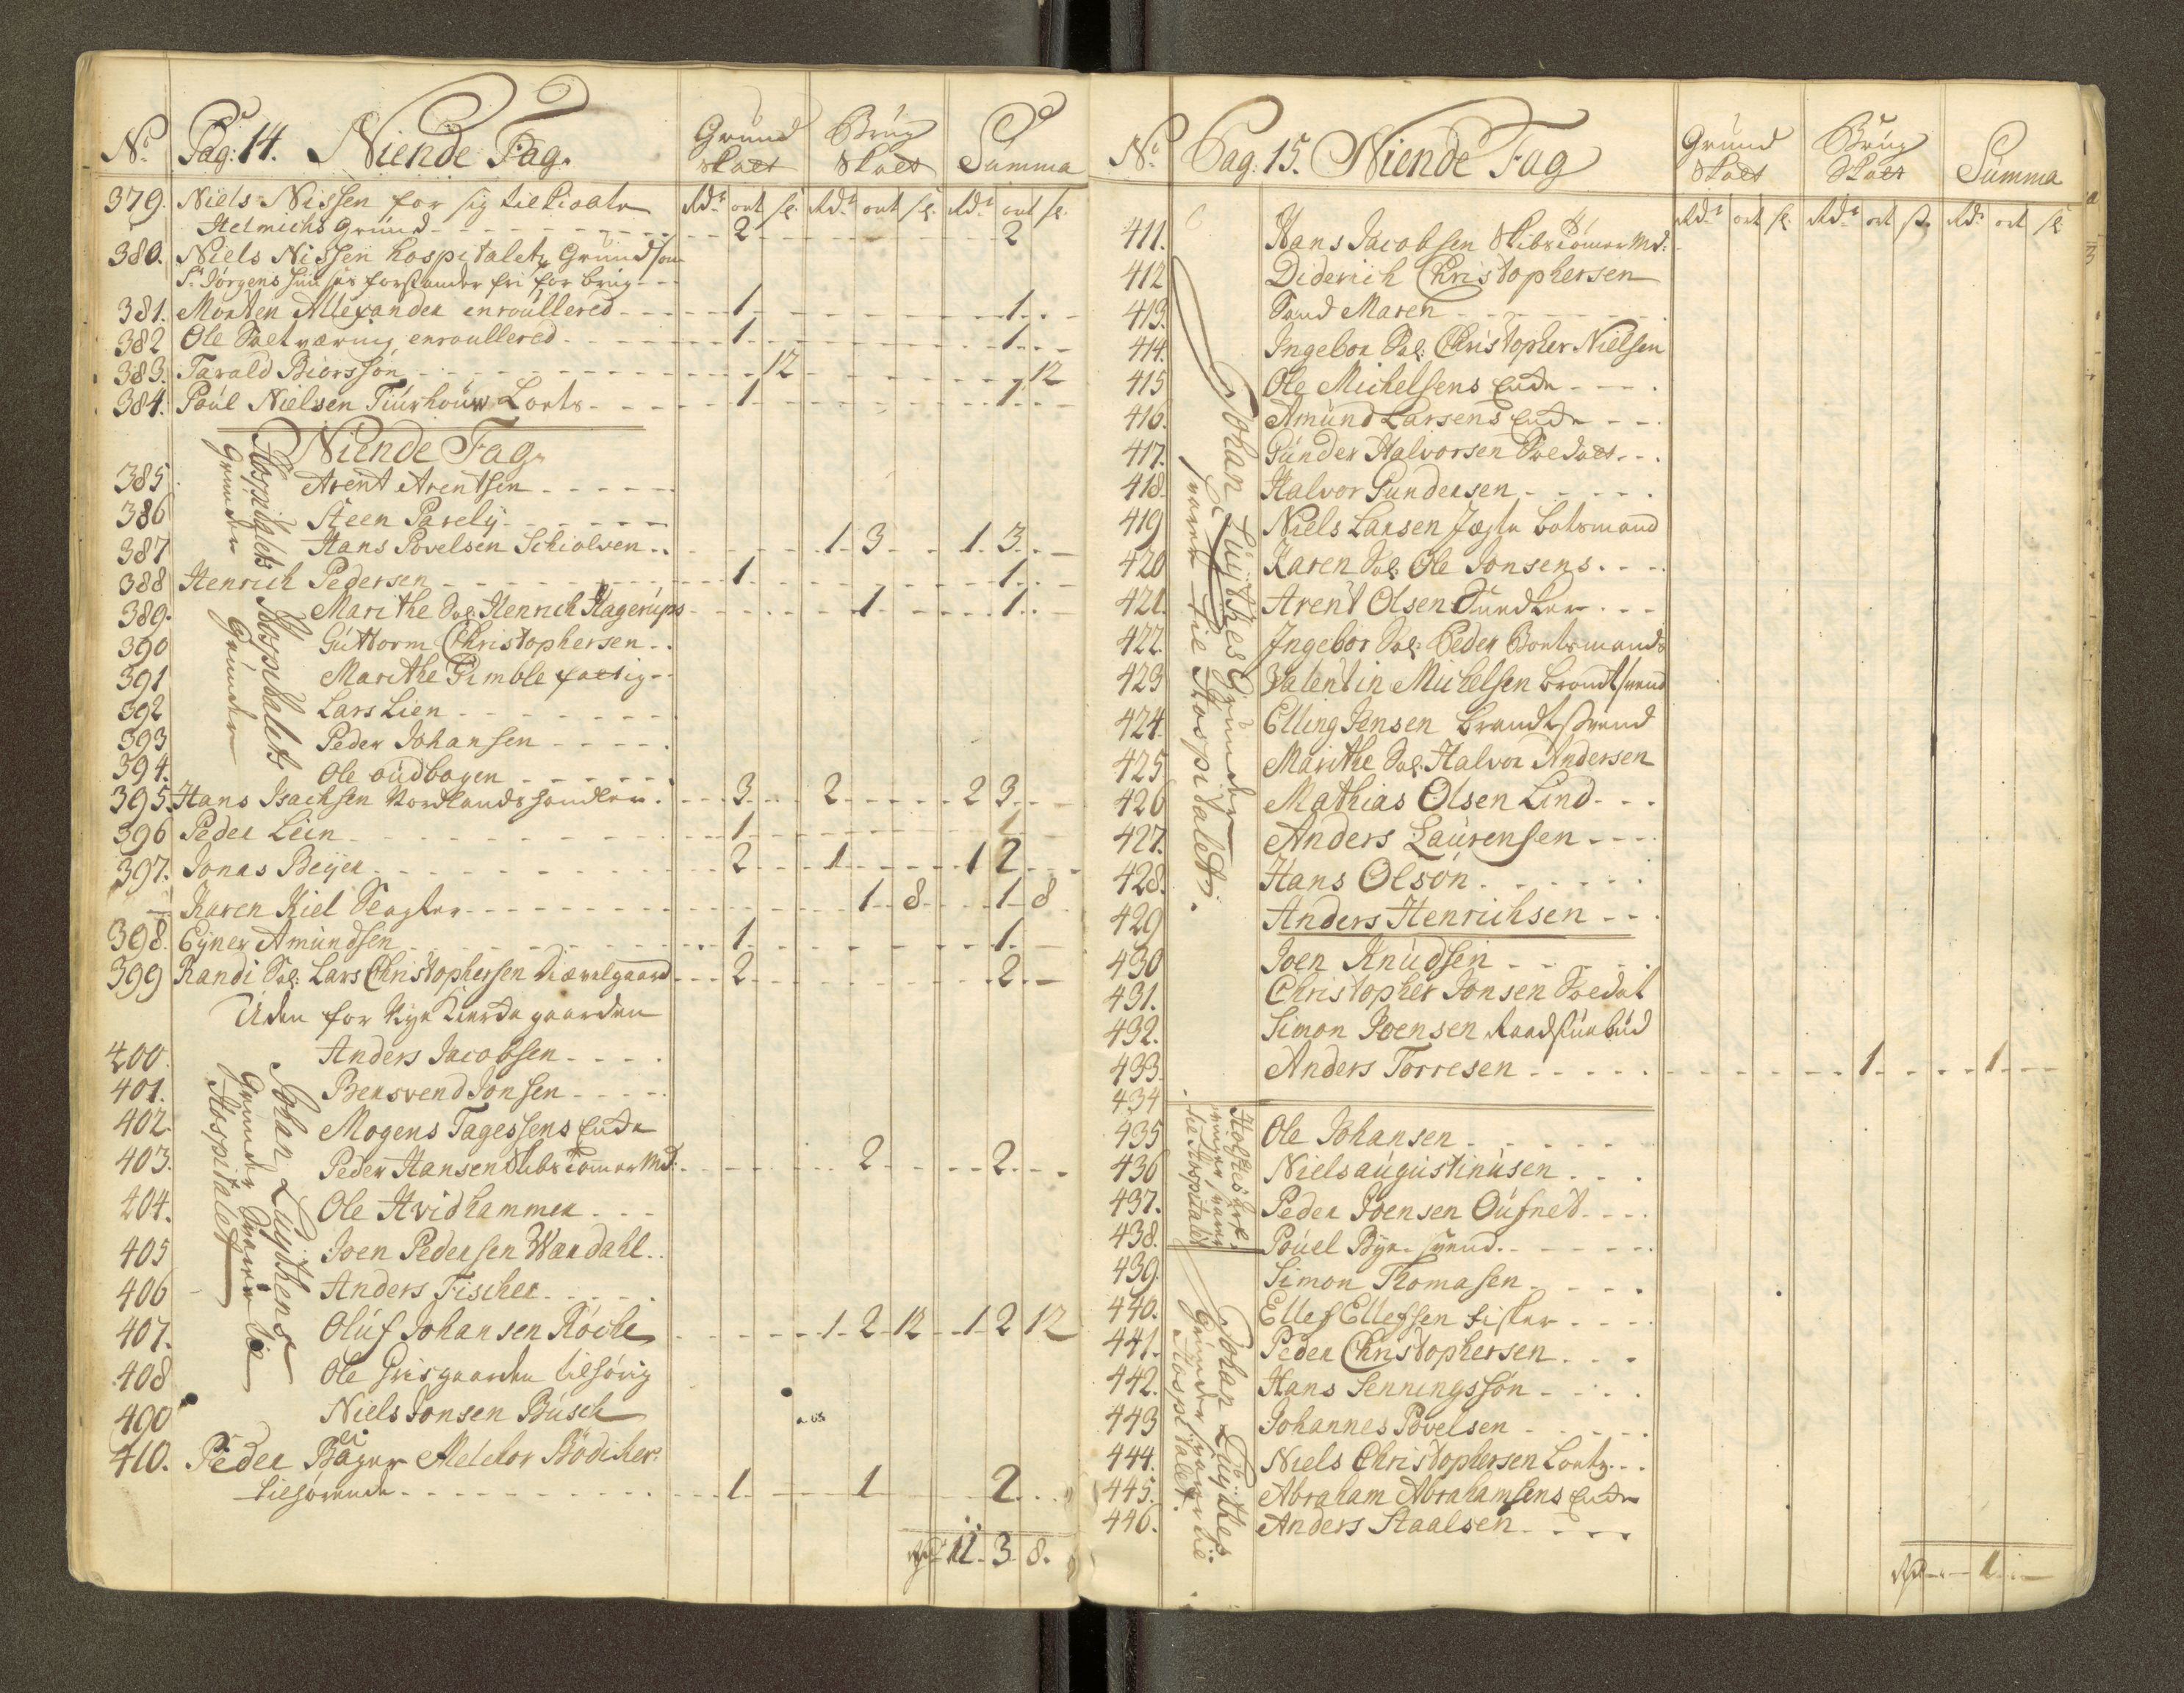 No. Pag: 14. Niende Fag. Grund Skatt Brug Skatt Summa
Rdr ort s. Rdr ort s. Rdr ort s.
379. Niels Nissen for sig
Helmichs Grund - - - 2 - - - 2
380. Niels Nissen hospitalets Grund som
St. Jörgens forstander fri for brug - - -
381. Morten Allexander enroullered - - - 1 - - - 1 - -
382 Ole enroullered - - - 1 - - - 1 - -
383. Tarald Biorssön - - - 12 - - - 12
384. Poul Nielsen Lots - - - 1 - - - 1 - -
Niende Fag.
Hospitalets Grunder
385 Arent Arentsen - - -
386 Steen Parely - - -
387 Hans Povelsen Schiolven - - - 1 - 3 - - 1 - 3 - -
388 Henrich Pedersen - - - 1 - - - 1 - -
Hospitalets Grunder
389. Marithe Sal. Henrich Hagerups - - - 1 - - - 1 - -
390 Guttorm Christophersen - -
391 Marithe Gimble fattig - -
392 Lars Lien - - -
393 Peder Johansen - - -
394. Ole oudbagen - - -
395. Hans Isachsen Nordlandshandler - - - 3 - - 2 - - - 2 3 - -
396 Peder Lein - - - 1 - - - 1
397. Jonas Beyer - - - 2 - - 1 - - - 1 2 - -
Karen Kiel - - - 1 - 8 - - 1 - 8
398. Eyner Amundsen - - - 1 - - - 1 -
399 Randi Sal. Lars Christophersen - - - 2 - - - 2 - -
Uden for Nye Kierke gaarden
Johan Luythens Grunder svarer til Hospitalet
400 Anders Jacobsen - - -
401. Bersvend Jonsen - - -
402. Mogens Tagessens Enke
403. Peder Hansen Skibstömermd: - - - 2 - - - 2 - -
404. Ole Hvidhammer - - -
405 Joen Pedersen Wardahl - -
406 Anders Fischer - - -
407. Oluf Johansen Röche - - - 1 - 2 - 12 - - 1 2 12
408 Ole Grisgaarden tilhörig
490 Niels Jonsen Busch
410. Peder Bager Melchor Bödiker
tilhörende - - - 1 - - 1 - - 2 - -
Rdr 11 - 3 - 8.
No. Pag: 15. Niende Fag Grund Skatt Brug Skatt Summa
Rdr ort s. Rdr ort s. Rdr ort s.
Johan Luythes Grunder svarer til Hospitalet.
411. Hans Jacobsen Skibstömermd:
412 Diderich Christophersen
413. Maren - - -
414. Ingebor Sal. Christopher Nielsen
415 Ole Michelsens Enke - - -
416. Amund Larsens Enke - - -
417. Gunder Halvorsen Soldat - - -
418. Halvor Gundersen - - -
419 Niels Larsen Jægte botsmand
420 Karen Sal. Ole Jonsens - - -
421. Arent Olsen - - -
422. Ingebor Sal. Peder Bortsmands
423 Valentin Michelsen brandtsvend
424. Elling Jensen brandtsvend
425 Marithe Sal. Halvor Andersen
426 Mathias Olsen Lind - - -
427. Anders Laurensen - - -
428. Hans Olsön - - -
429 Anders Henrichsen - - -
430 Joen Knudsen - - -
431. Christopher Jonsen Soldat
432. Simon Joensen Raadstue bud
433 Anders Torresen - - - 1 - - - 1 - -
434
435 Ole Johansen - - -
436 Niels augustinusen - - -
437. Peder Joensen Oufned - - -
438. Pouel Bye svend - - -
til Hospitalet
439. Simon Thomasen - - -
Johan Luythes Grunder svarer til Hospitalet.
440. Ellef Ellefsen fisker - - -
441. Peder Christophersen - - -
442. Hans Henningssön - - -
443 Johannes Povelsen - - -
444. Niels Christophersen Lots - - -
445. Abraham Abrahamsens Enke
446. Anders Staalsen - - -
Rdr - - 1 - -